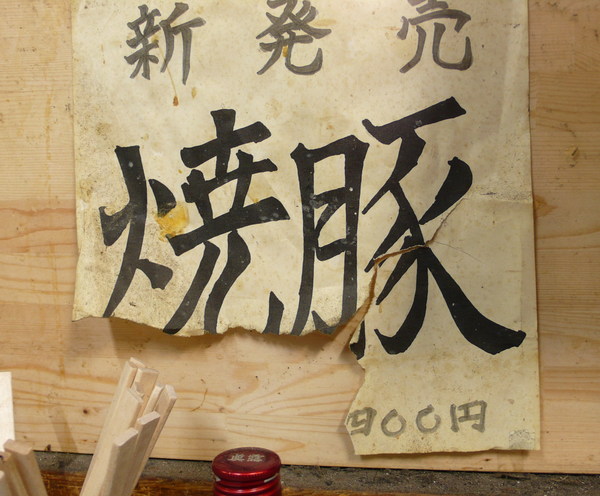 新発売
焼豚
900円